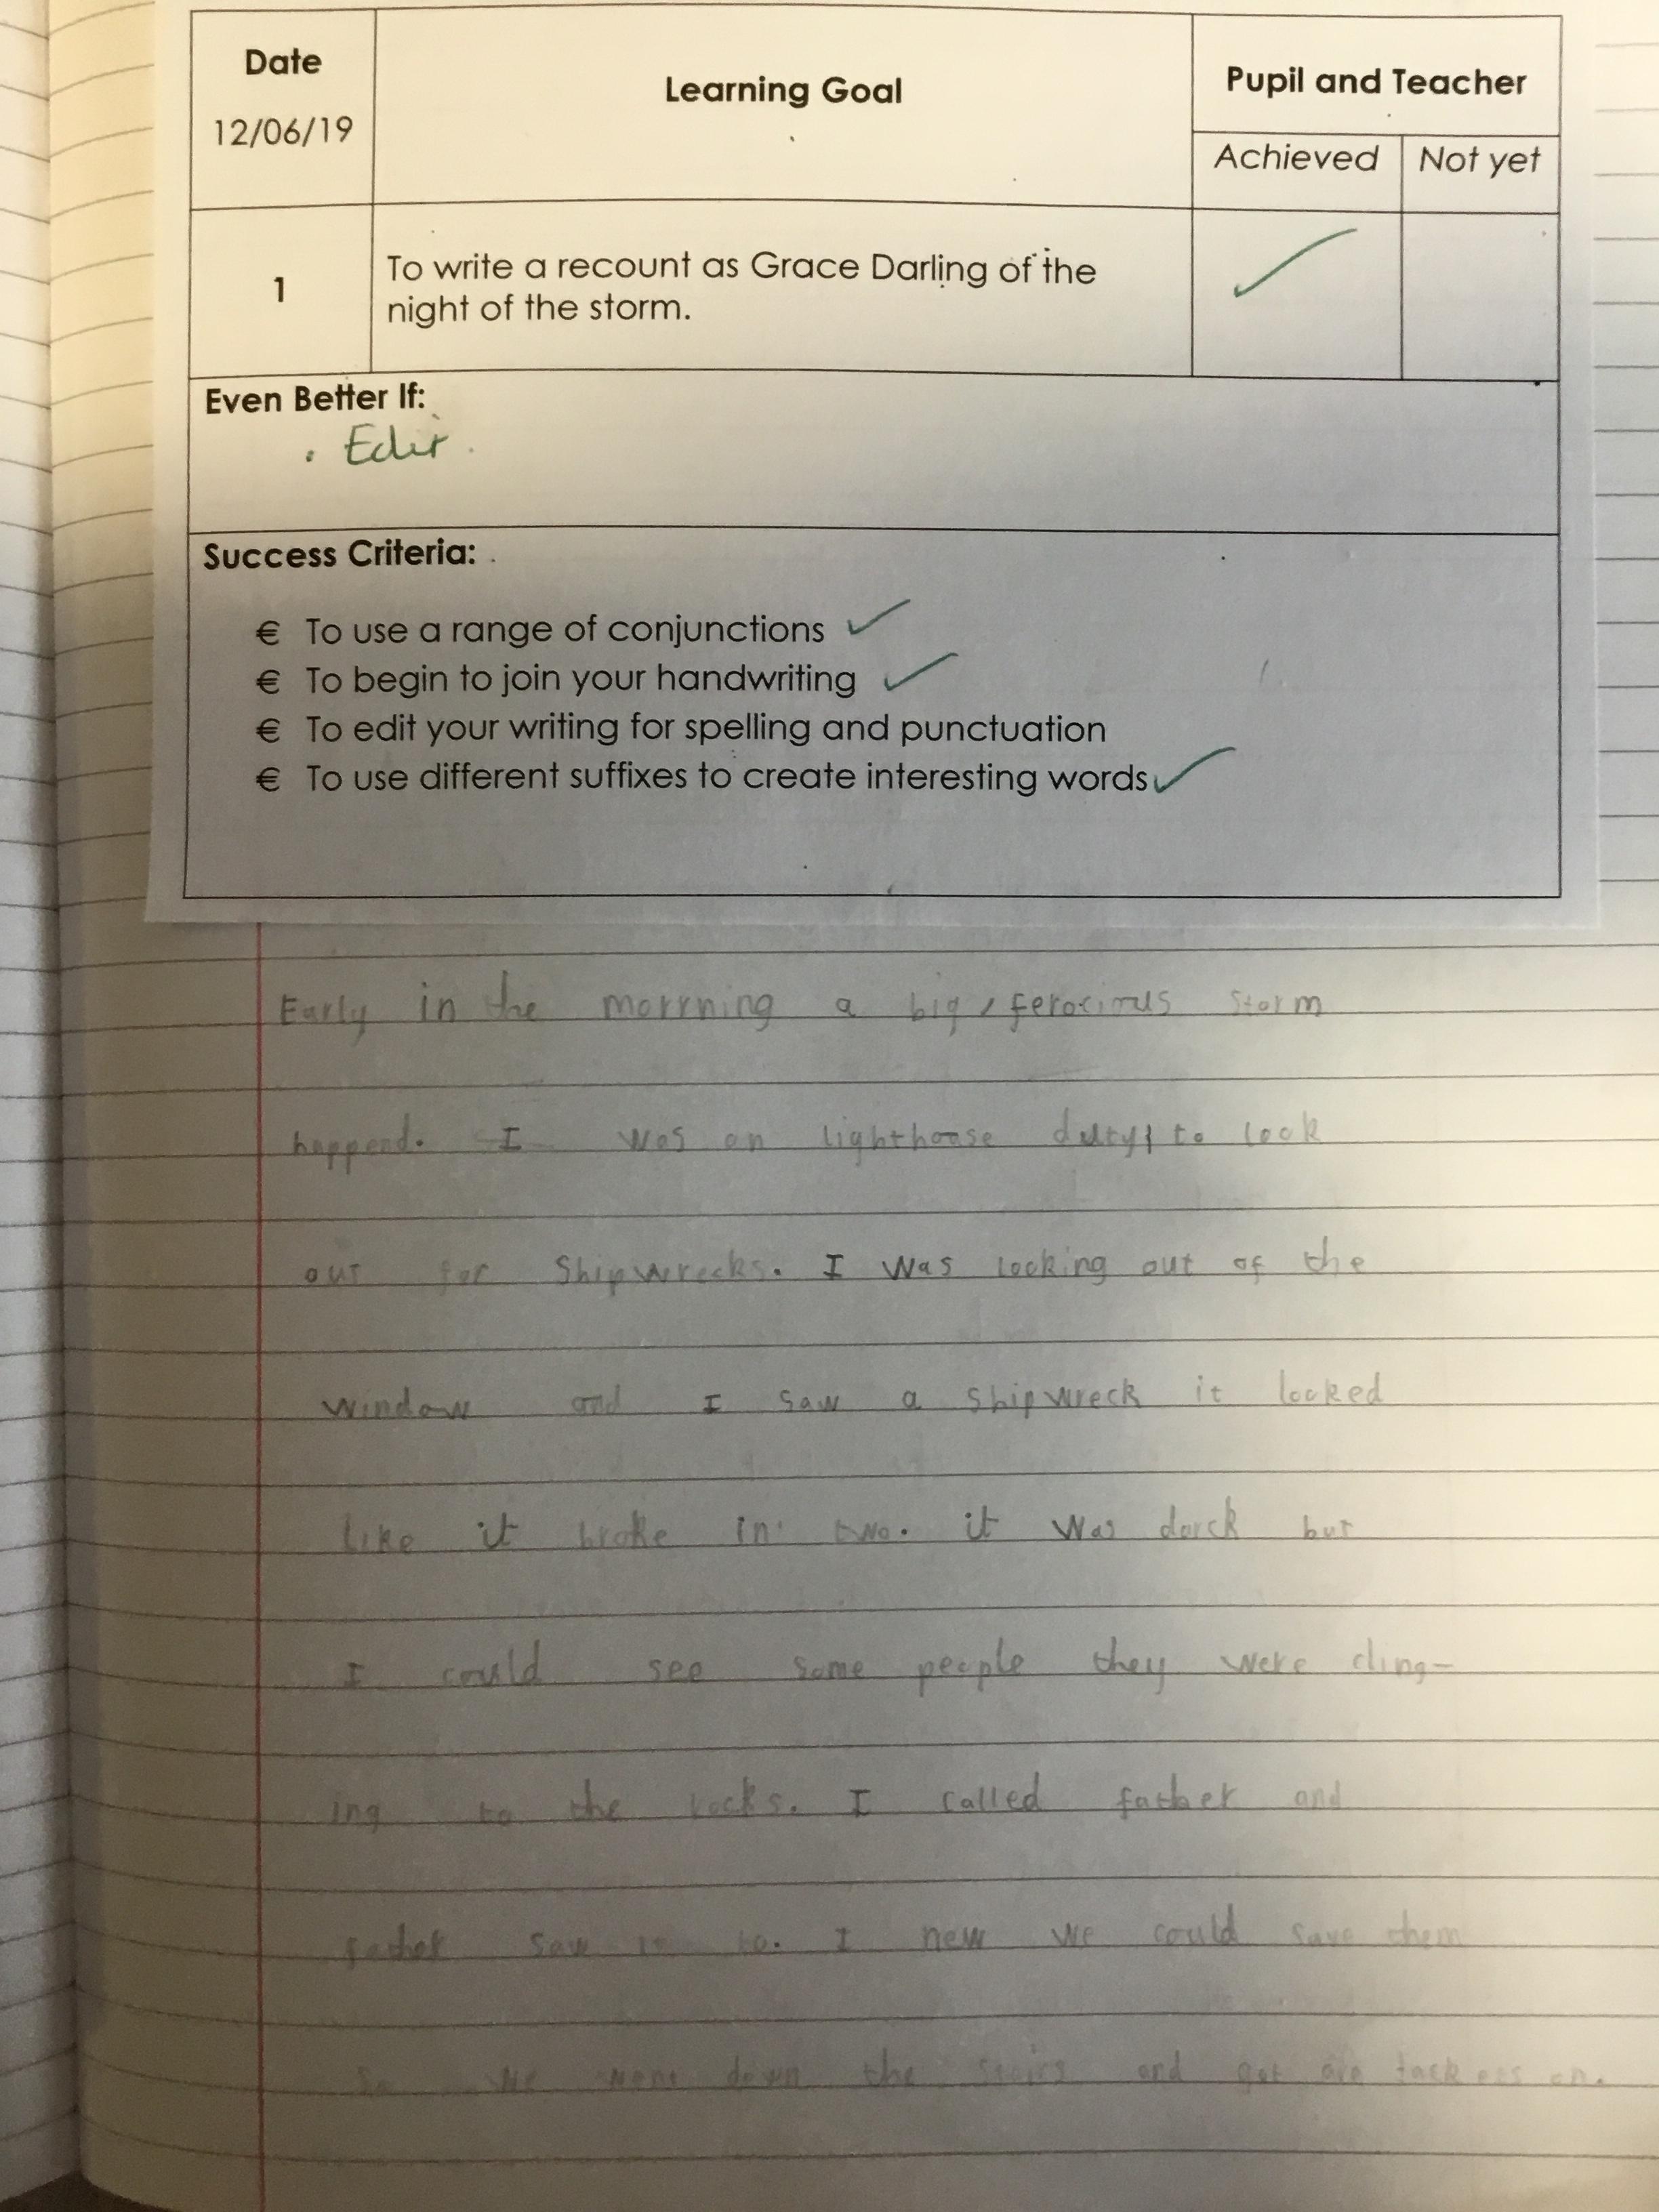 Date
12/06/19
Learning Goal
Pupil and Teacher
Achieved
Not yet
1
To write a recount as Grace Darling of the
night of the storm.
Even Better If:
• Edit
Success Criteria:
€ To use a range of conjunctions
€ To begin to join your handwriting
€ To edit your writing for spelling and punctuation
€ To use different suffixes to create interesting words
Early in the morrning a big, ferocious storm
happend. I was on lighthouse duty to look
out for Shipwrecks. I was looking out of the
window and I saw a shipwreck it looked
like it broke in two. it was darck but
I could see some people they were cling-
ing to the rocks. I called father and
father saw it to. I new we could save them
So we went down the stairs and got are on.